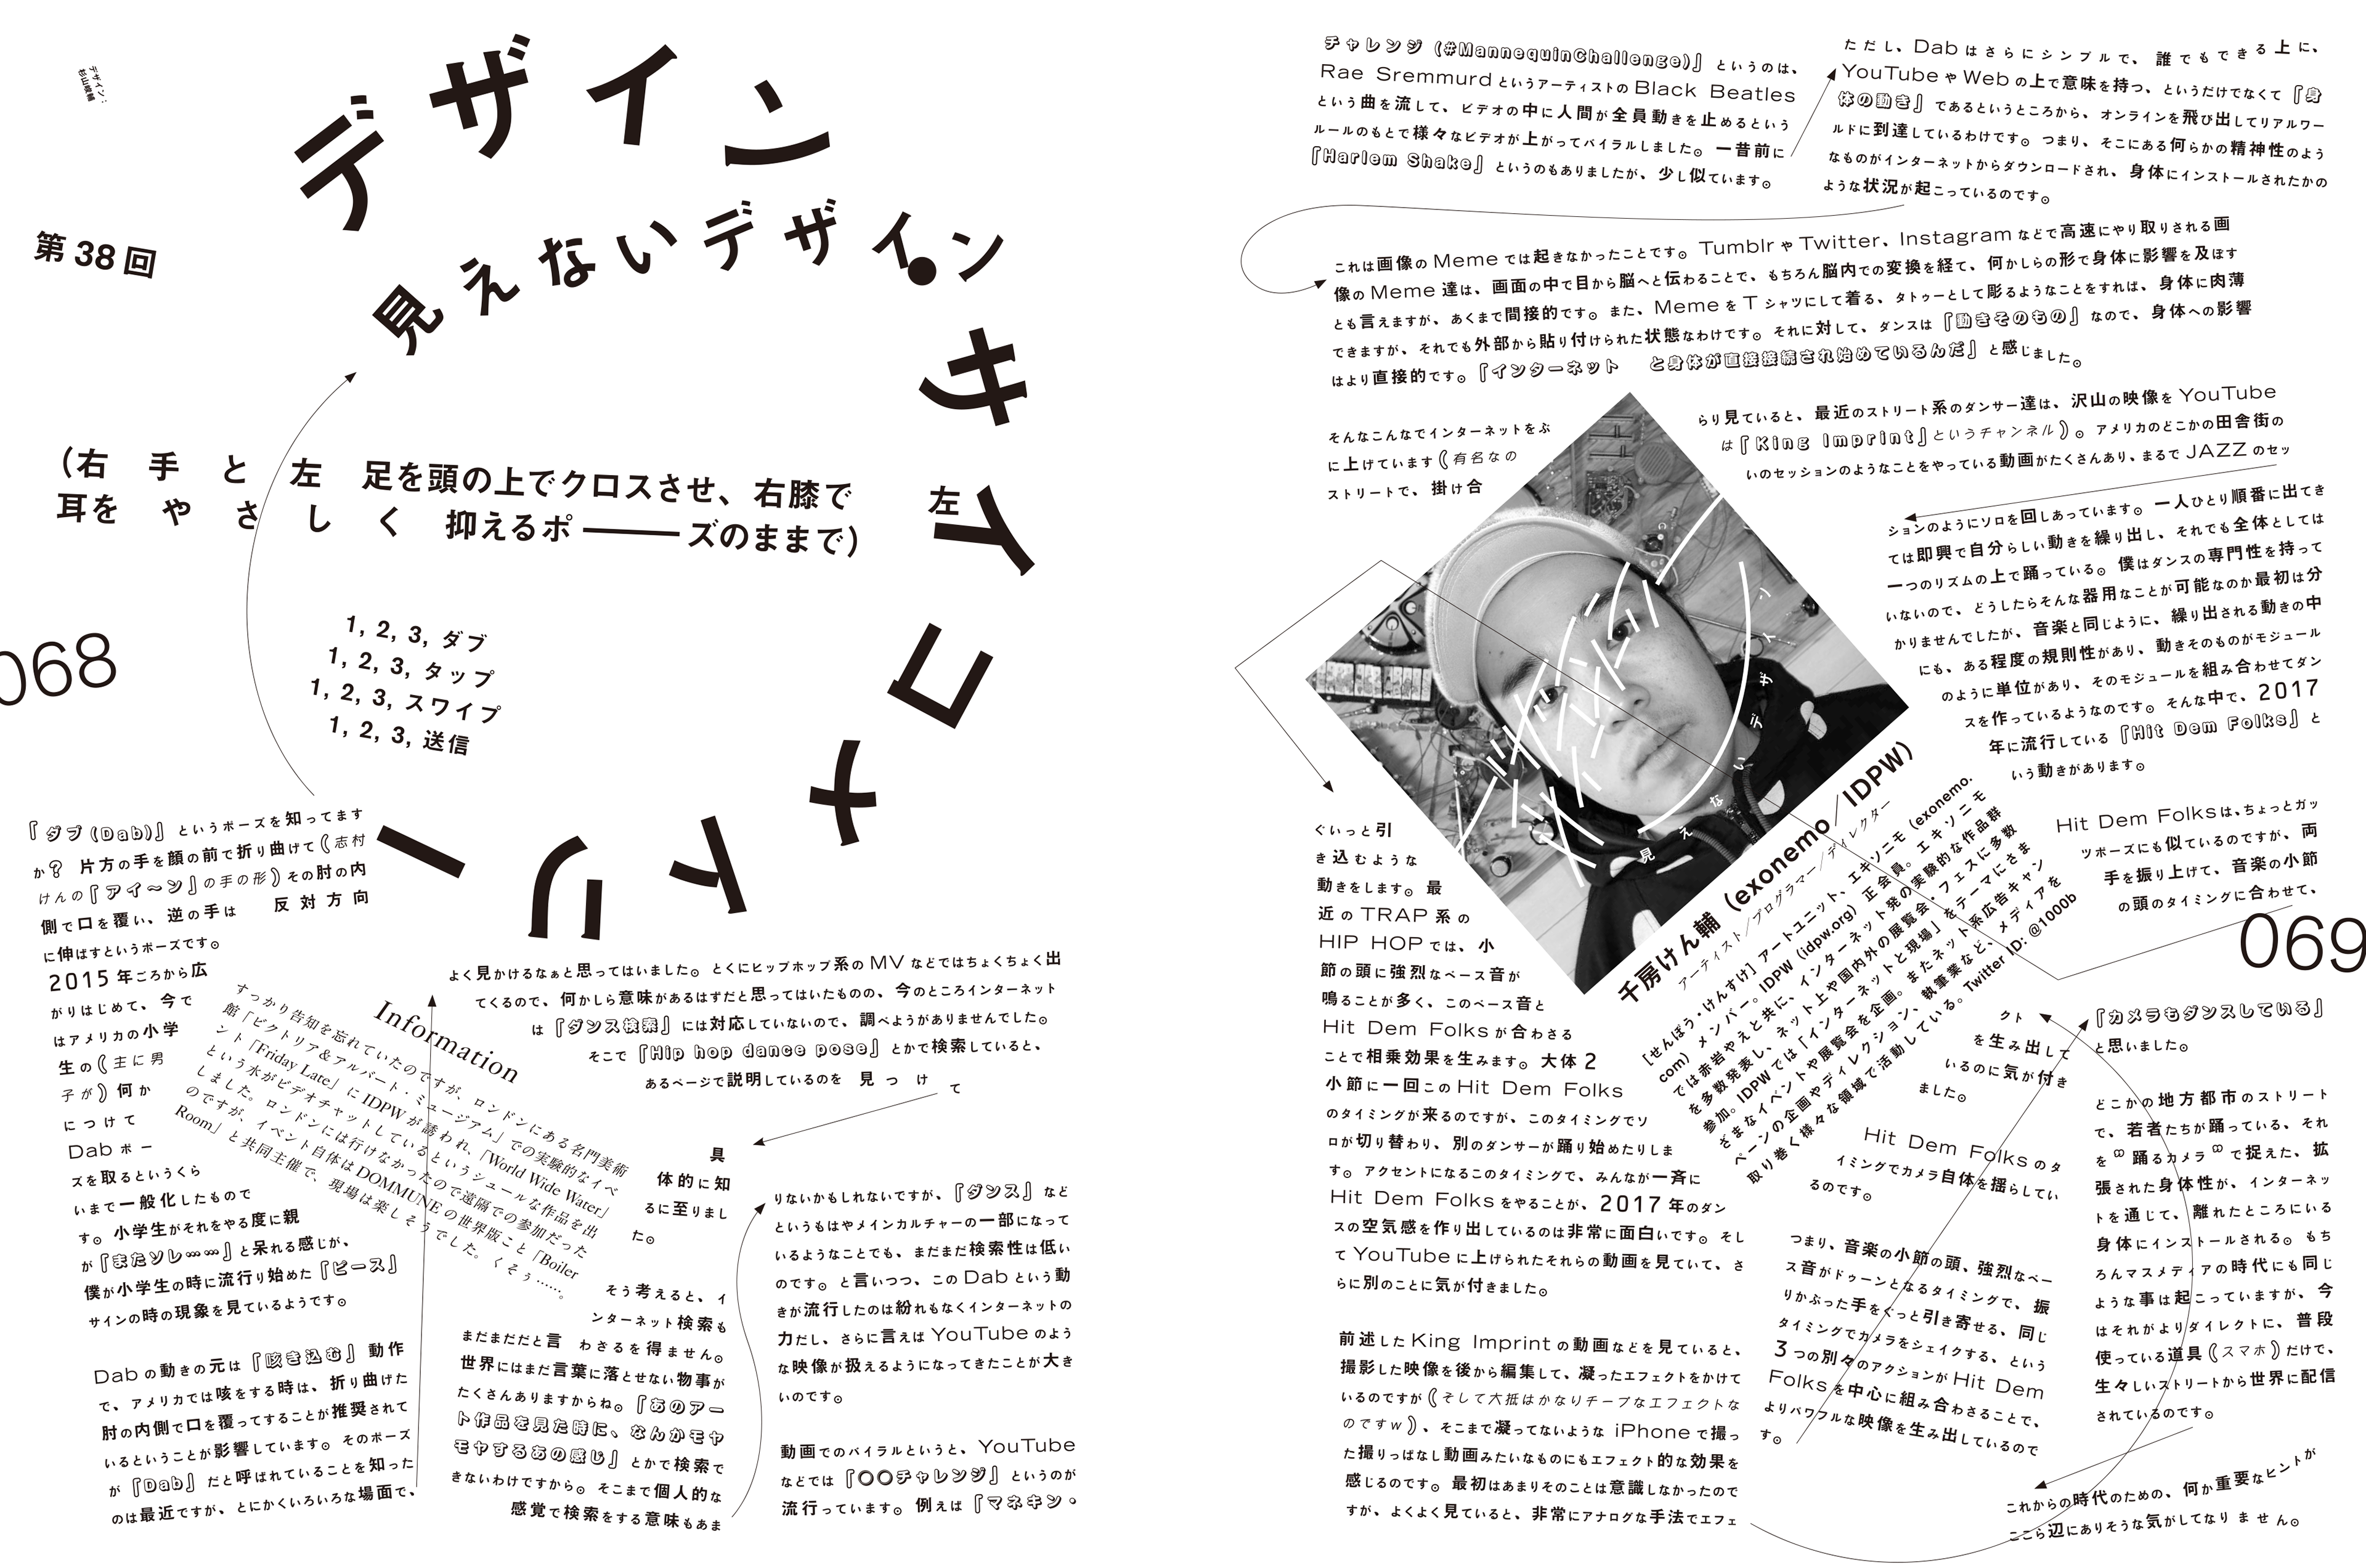 デザイン：
杉山峻輔
第38回
デザイン・サイコメトリー
見えないデザイン
（右手と左足を頭の上でクロスさせ、右膝で左
耳をやさしく抑えるポーーーズのままで）
1, 2, 3, ダブ
1, 2, 3, タップ
1, 2, 3, スワイプ
1, 2, 3, 送信
068
『ダブ（Dab）』というポーズを知ってます
か？ 片方の手を顔の前で折り曲げて（志村
けんの『アイ〜ン』の手の形）その肘の内
側で口を覆い、逆の手は 反対方向
に伸ばすというポーズです。
2015年ころから広
がりはじめて、今で
はアメリカの小学
生の（主に男
子が）何か
につけて
Dabポー
ズを取るというくら
いまで一般化したもので
す。小学生がそれをやる度に親
が『またソレ……』と呆れる感じが、
僕が小学生の時に流行り始めた『ピース』
サインの時の現象を見ているようです。
Dabの動きの元は『咳き込む』動作
で、アメリカでは咳をする時は、折り曲げた
肘の内側で口を覆ってすることが推奨されて
いるということが影響しています。そのポーズ
が『Dab』だと呼ばれていることを知った
のは最近ですが、とにかくいろいろな場面で、
よく見かけるなぁと思ってはいました。とくにヒップホップ系のMVなどではちょくちょく出
てくるので、何かしら意味があるはずだと思ってはいたものの、今のところインターネット
は『ダンス検索』には対応していないので、調べようがありませんでした。
そこで『Hip hop dance pose』とかで検索していると、
あるページで説明しているのを見つけて
具
体的に知
るに至りまし
た。
そう考えると、イ
ンターネット検索も
まだまだだと言 わざるを得ません。
世界にはまだ言葉に落とせない物事が
たくさんありますからね。『あのアー
ト作品を見た時に、なんかモヤ
モヤするあの感じ』とかで検索で
きないわけですから。そこまで個人的な
感覚で検索をする意味もあま
りないかもしれないですが、『ダンス』など
というもはやメインカルチャーの一部になって
いるようなことでも、まだまだ検索性は低い
のです。と言いつつ、このDabという動
きが流行したのは紛れもなくインターネットの
力だし、さらに言えばYouTubeのよう
な映像が扱えるようになってきたことが大き
いのです。
動画でのバイラルというと、YouTube
などでは『○○チャレンジ』というのが
流行っています。例えば『マネキン・
Information
すっかり告知を忘れていたのですが、ロンドンにある名門美術
館「ビクトリア＆アルバート・ミュージアム」での実験的なイベ
ント「Friday Late」にIDPWが誘われ、「World Wide Water」
という水がビデオチャットしているというシュールな作品を出
しました。ロンドンには行けなかったので遠隔での参加だった
のですが、イベント自体はDOMMUNEの世界版こと「Boiler
Room」と共同主催で、現場は楽しそうでした。くそぅ……。
チャレンジ（#MannequinChallenge）』というのは、
Rae SremmurdというアーティストのBlack Beatles
という曲を流して、ビデオの中に人間が全員動きを止めるという
ルールのもとで様々なビデオが上がってバイラルしました。一昔前に
『Harlem Shake』というのもありましたが、少し似ています。
ただし、Dabはさらにシンプルで、誰でもできる上に、
YouTubeやWebの上で意味を持つ、というだけでなくて『身
体の動き』であるというところから、オンラインを飛び出してリアルワー
ルドに到達しているわけです。つまり、そこにある何らかの精神性のよう
なものがインターネットからダウンロードされ、身体にインストールされたかの
ような状況が起こっているのです。
これは画像のMemeでは起きなかったことです。TumblrやTwitter、Instagramなどで高速にやり取りされる画
像のMeme達は、画面の中で目から脳へと伝わることで、もちろん脳内での変換を経て、何かしらの形で身体に影響を及ぼす
とも言えますが、あくまで間接的です。また、MemeをTシャツにして着る、タトゥーとして彫るようなことをすれば、身体に肉薄
できますが、それでも外部から貼り付けられた状態なわけです。それに対して、ダンスは『動きそのもの』なので、身体への影響
はより直接的です。『インターネット と身体が直接接続され始めているんだ』と感じました。
そんなこんなでインターネットをぶ
らり見ていると、最近のストリート系のダンサー達は、沢山の映像をYouTube
に上げています（有名なの
は『King Imprint』というチャンネル）。アメリカのどこかの田舎街の
ストリートで、掛け合
いのセッションのようなことをやっている動画がたくさんあり、まるでJAZZのセッ
ションのようにソロを回しあっています。一人ひとり順番に出てき
ては即興で自分らしい動きを繰り出し、それでも全体としては
一つのリズムの上で踊っている。僕はダンスの専門性を持って
いないので、どうしたらそんな器用なことが可能なのか最初は分
かりませんでしたが、音楽と同じように、繰り出される動きの中
にも、ある程度の規則性があり、動きそのものがモジュール
のように単位があり、そのモジュールを組み合わせてダン
スを作っているようなのです。そんな中で、2017
年に流行している『Hit Dem Folks』と
いう動きがあります。
Hit Dem Folksは、ちょっとガッ
ツポーズにも似ているのですが、両
手を振り上げて、音楽の小節
の頭のタイミングに合わせて、
069
見えないデザイン
千房けん輔（exonemo／IDPW）
アーティスト／プログラマー／ディレクター
［せんぼう・けんすけ］アートユニット、エキソニモ（exonemo.
com）メンバー。IDPW（idpw.org）正会員。エキソニモ
では赤岩やえと共に、インターネット発の実験的な作品群
を多数発表し、ネット上や国内外の展覧会・フェスに多数
参加。IDPWでは「インターネットと現場」をテーマにさま
ざまなイベントや展覧会を企画。またネット系広告キャン
ペーンの企画やディレクション、執筆業など、メディアを
取り巻く様々な領域で活動している。Twitter ID: @1000b
ぐいっと引
き込むような
動きをします。最
近のTRAP系の
HIP HOPでは、小
節の頭に強烈なベース音が
鳴ることが多く、このベース音と
Hit Dem Folksが合わさる
ことで相乗効果を生みます。大体2
小節に一回このHit Dem Folks
のタイミングが来るのですが、このタイミングでソ
ロが切り替わり、別のダンサーが踊り始めたりしま
す。アクセントになるこのタイミングで、みんなが一斉に
Hit Dem Folksをやることが、2017年のダン
スの空気感を作り出しているのは非常に面白いです。そし
てYouTubeに上げられたそれらの動画を見ていて、さ
らに別のことに気が付きました。
前述したKing Imprintの動画などを見ていると、
撮影した映像を後から編集して、凝ったエフェクトをかけて
いるのですが（そして大抵はかなりチープなエフェクトな
のですｗ）、そこまで凝ってないようなiPhoneで撮っ
た撮りっぱなし動画みたいなものにもエフェクト的な効果を
感じるのです。最初はあまりそのことは意識しなかったので
すが、よくよく見ていると、非常にアナログな手法でエフェ
クト
を生み出して
いるのに気が付き
ました。
Hit Dem Folksのタ
イミングでカメラ自体を揺らしてい
るのです。
つまり、音楽の小節の頭、強烈なベー
ス音がドゥーンとなるタイミングで、振
りかぶった手をぐっと引き寄せる、同じ
タイミングでカメラをシェイクする、という
3つの別々のアクションがHit Dem
Folksを中心に組み合わさることで、
よりパワフルな映像を生み出しているので
す。
『カメラもダンスしている』
と思いました。
どこかの地方都市のストリート
で、若者たちが踊っている、それ
を“踊るカメラ”で捉えた、拡
張された身体性が、インターネッ
トを通じて、離れたところにいる
身体にインストールされる。もち
ろんマスメディアの時代にも同じ
ような事は起こっていますが、今
はそれがよりダイレクトに、普段
使っている道具（スマホ）だけで、
生々しいストリートから世界に配信
されているのです。
これからの時代のための、何か重要なヒントが
ここら辺にありそうな気がしてなりません。